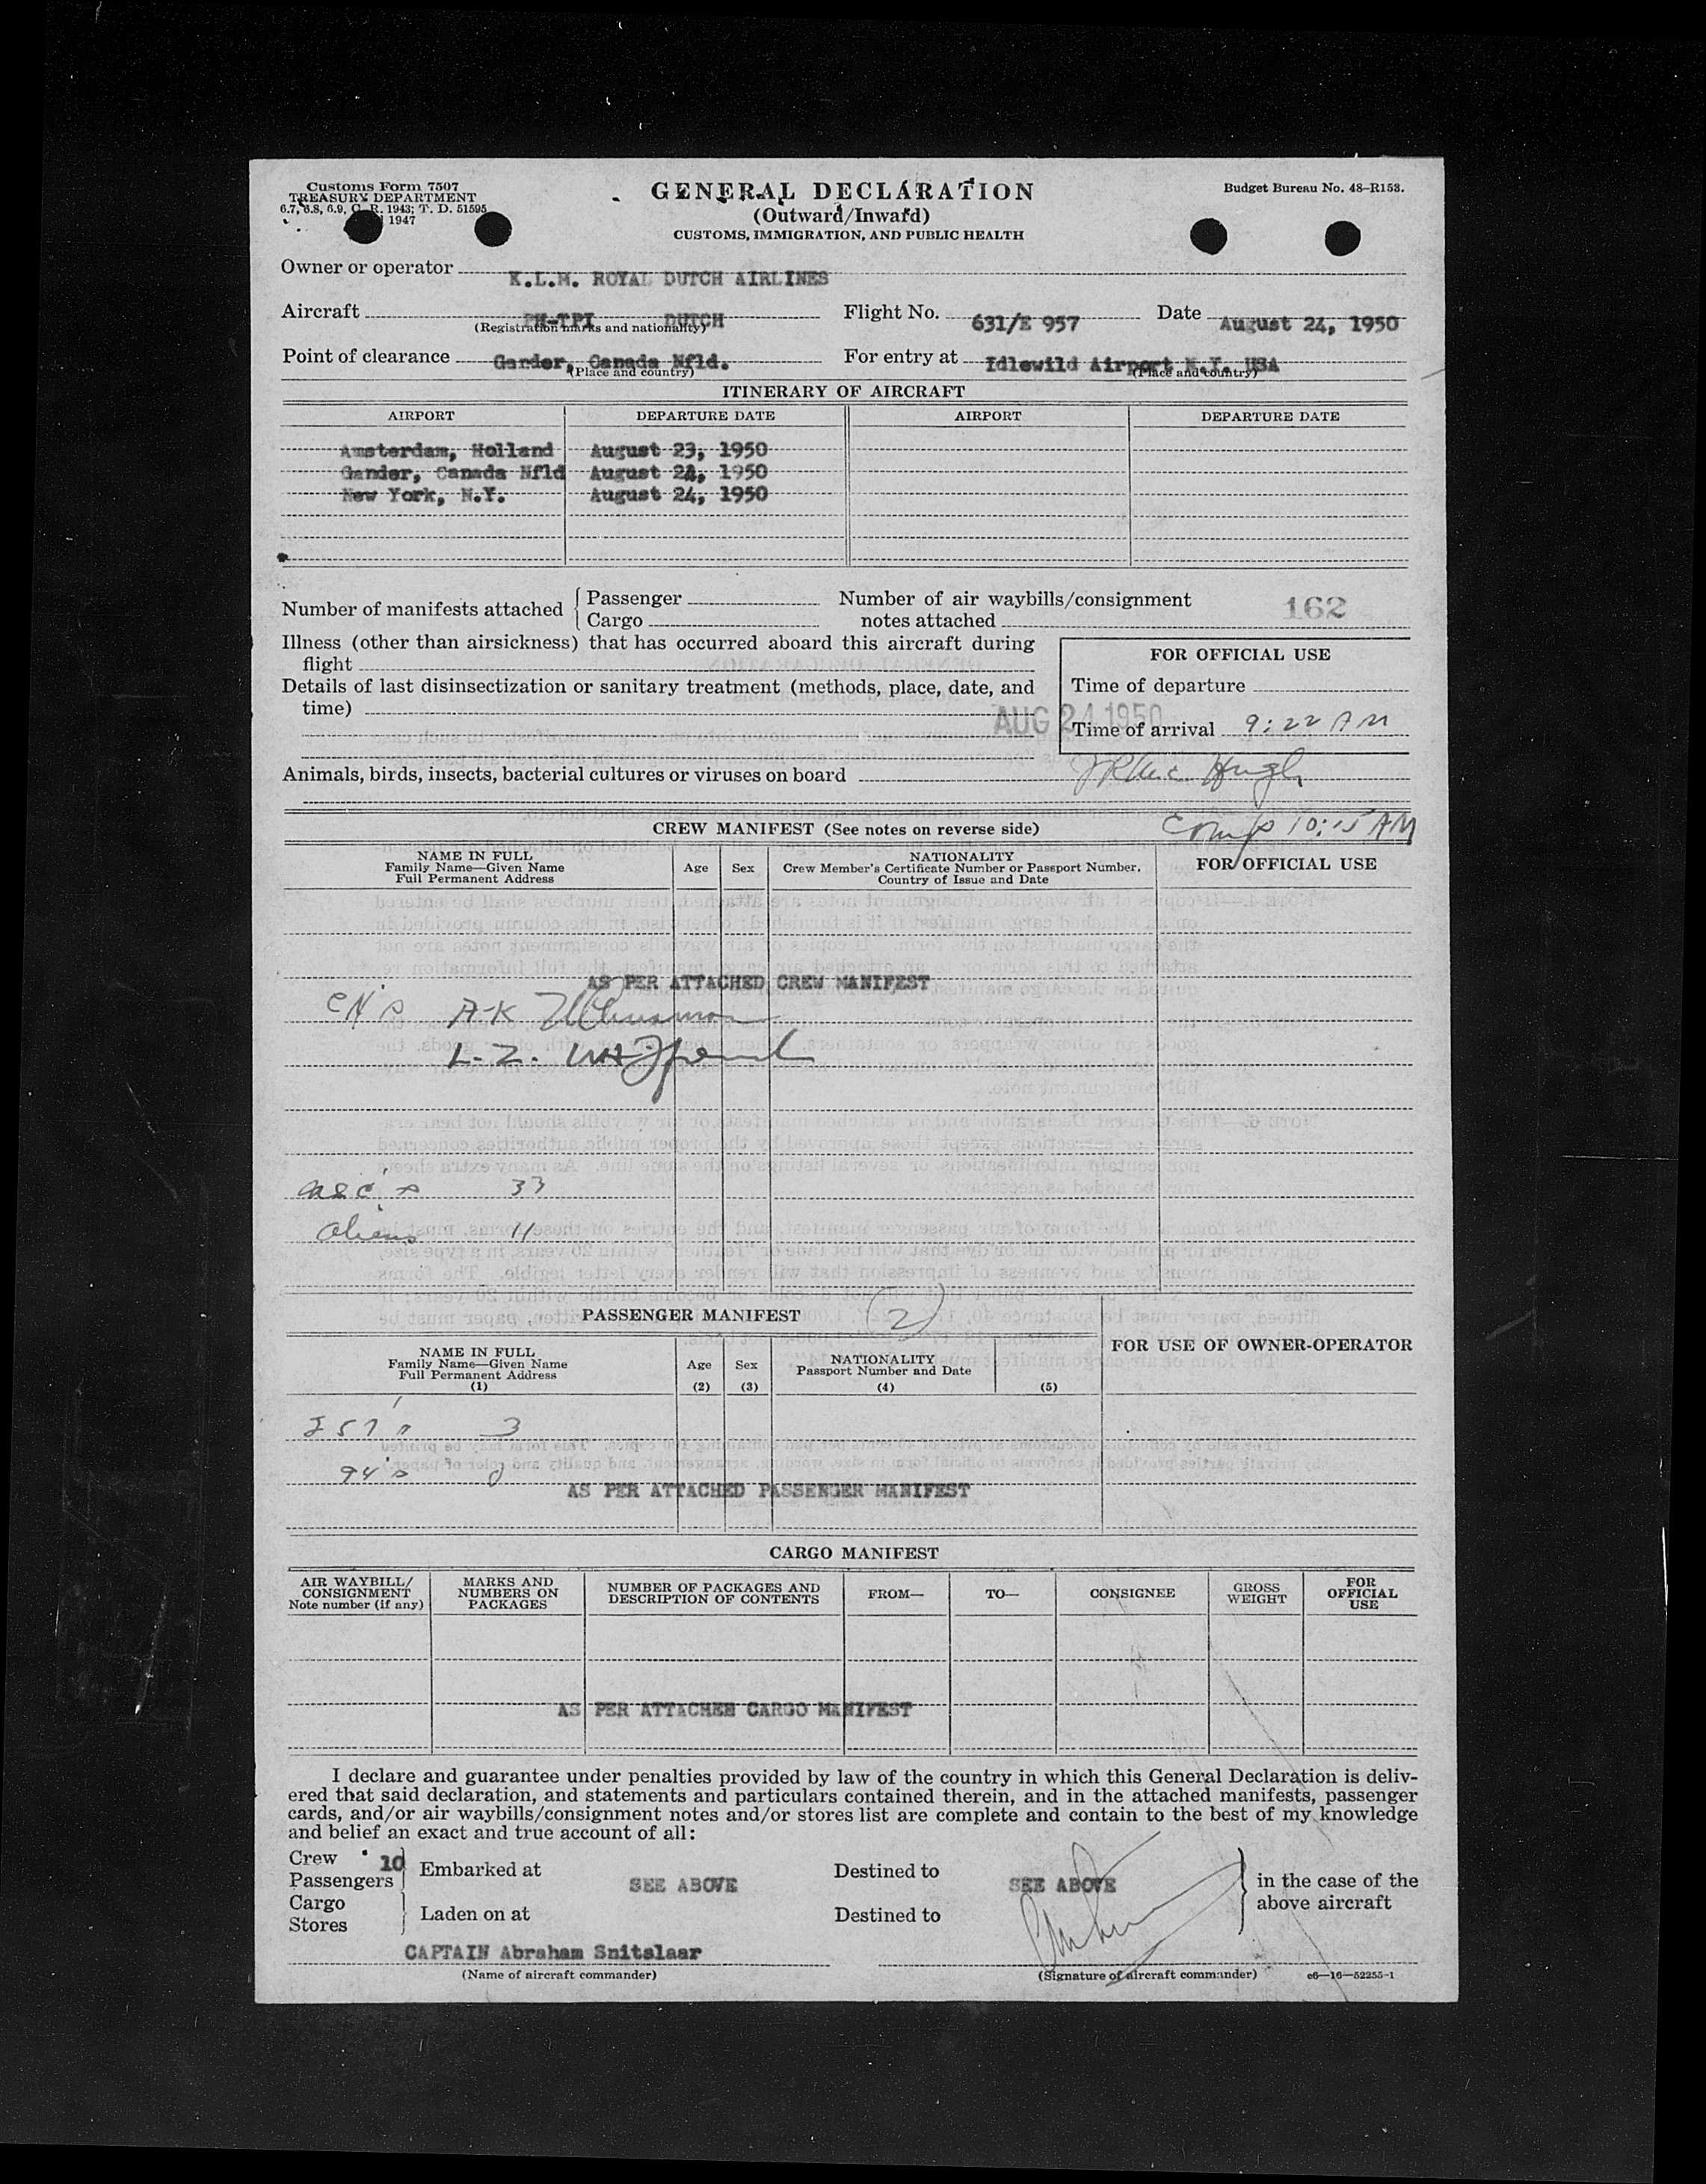 Customs Form 7507
TREASURY DEPARTMENT
6.7, 6.8, 6.9, C. R. 1943; T. D. 51595
1947
GENERAL DECLARATION
(Outward/Inward)
CUSTOMS, IMMIGRATION, AND PUBLIC HEALTH
Budget Bureau No. 48–R153.
Owner or operator K.L.M. ROYAL DUTCH AIRLINES
Aircraft PH-TPI DUTCH Flight No. 631/E 957 Date August 24, 1950
(Registration marks and nationality)
Point of clearance Gander, Canada Nfld. For entry at Idlewild Airport N.Y. USA
(Place and country) (Place and country)
ITINERARY OF AIRCRAFT
AIRPORT DEPARTURE DATE AIRPORT DEPARTURE DATE
Amsterdam, Holland August 23, 1950
Gander, Canada Nfld August 24, 1950
New York, N.Y. August 24, 1950
Number of manifests attached { Passenger
Cargo
Number of air waybills/consignment
notes attached
162
Illness (other than airsickness) that has occurred aboard this aircraft during
flight
Details of last disinsectization or sanitary treatment (methods, place, date, and
time)
AUG 24 1950
FOR OFFICIAL USE
Time of departure
Time of arrival 9:22 AM
Animals, birds, insects, bacterial cultures or viruses on board
CREW MANIFEST (See notes on reverse side)
Comp 10:15 AM
NAME IN FULL
Family Name—Given Name
Full Permanent Address
Age Sex
NATIONALITY
Crew Member's Certificate Number or Passport Number,
Country of Issue and Date
FOR OFFICIAL USE
AS PER ATTACHED CREW MANIFEST
A-K
L-Z
33
Aliens 11
PASSENGER MANIFEST (2)
FOR USE OF OWNER-OPERATOR
NAME IN FULL
Family Name—Given Name
Full Permanent Address
(1)
Age
(2)
Sex
(3)
NATIONALITY
Passport Number and Date
(4) (5)
257's 3
94's 0
AS PER ATTACHED PASSENGER MANIFEST
CARGO MANIFEST
AIR WAYBILL/
CONSIGNMENT
Note number (if any)
MARKS AND
NUMBERS ON
PACKAGES
NUMBER OF PACKAGES AND
DESCRIPTION OF CONTENTS
FROM— TO— CONSIGNEE
GROSS
WEIGHT
FOR
OFFICIAL
USE
AS PER ATTACHED CARGO MANIFEST
I declare and guarantee under penalties provided by law of the country in which this General Declaration is deliv-
ered that said declaration, and statements and particulars contained therein, and in the attached manifests, passenger
cards, and/or air waybills/consignment notes and/or stores list are complete and contain to the best of my knowledge
and belief an exact and true account of all:
Crew 10
Passengers
Embarked at SEE ABOVE Destined to SEE ABOVE
Cargo
Stores
Laden on at Destined to
in the case of the
above aircraft
CAPTAIN Abraham Snitslaar
(Name of aircraft commander) (Signature of aircraft commander) c6—16—52255-1